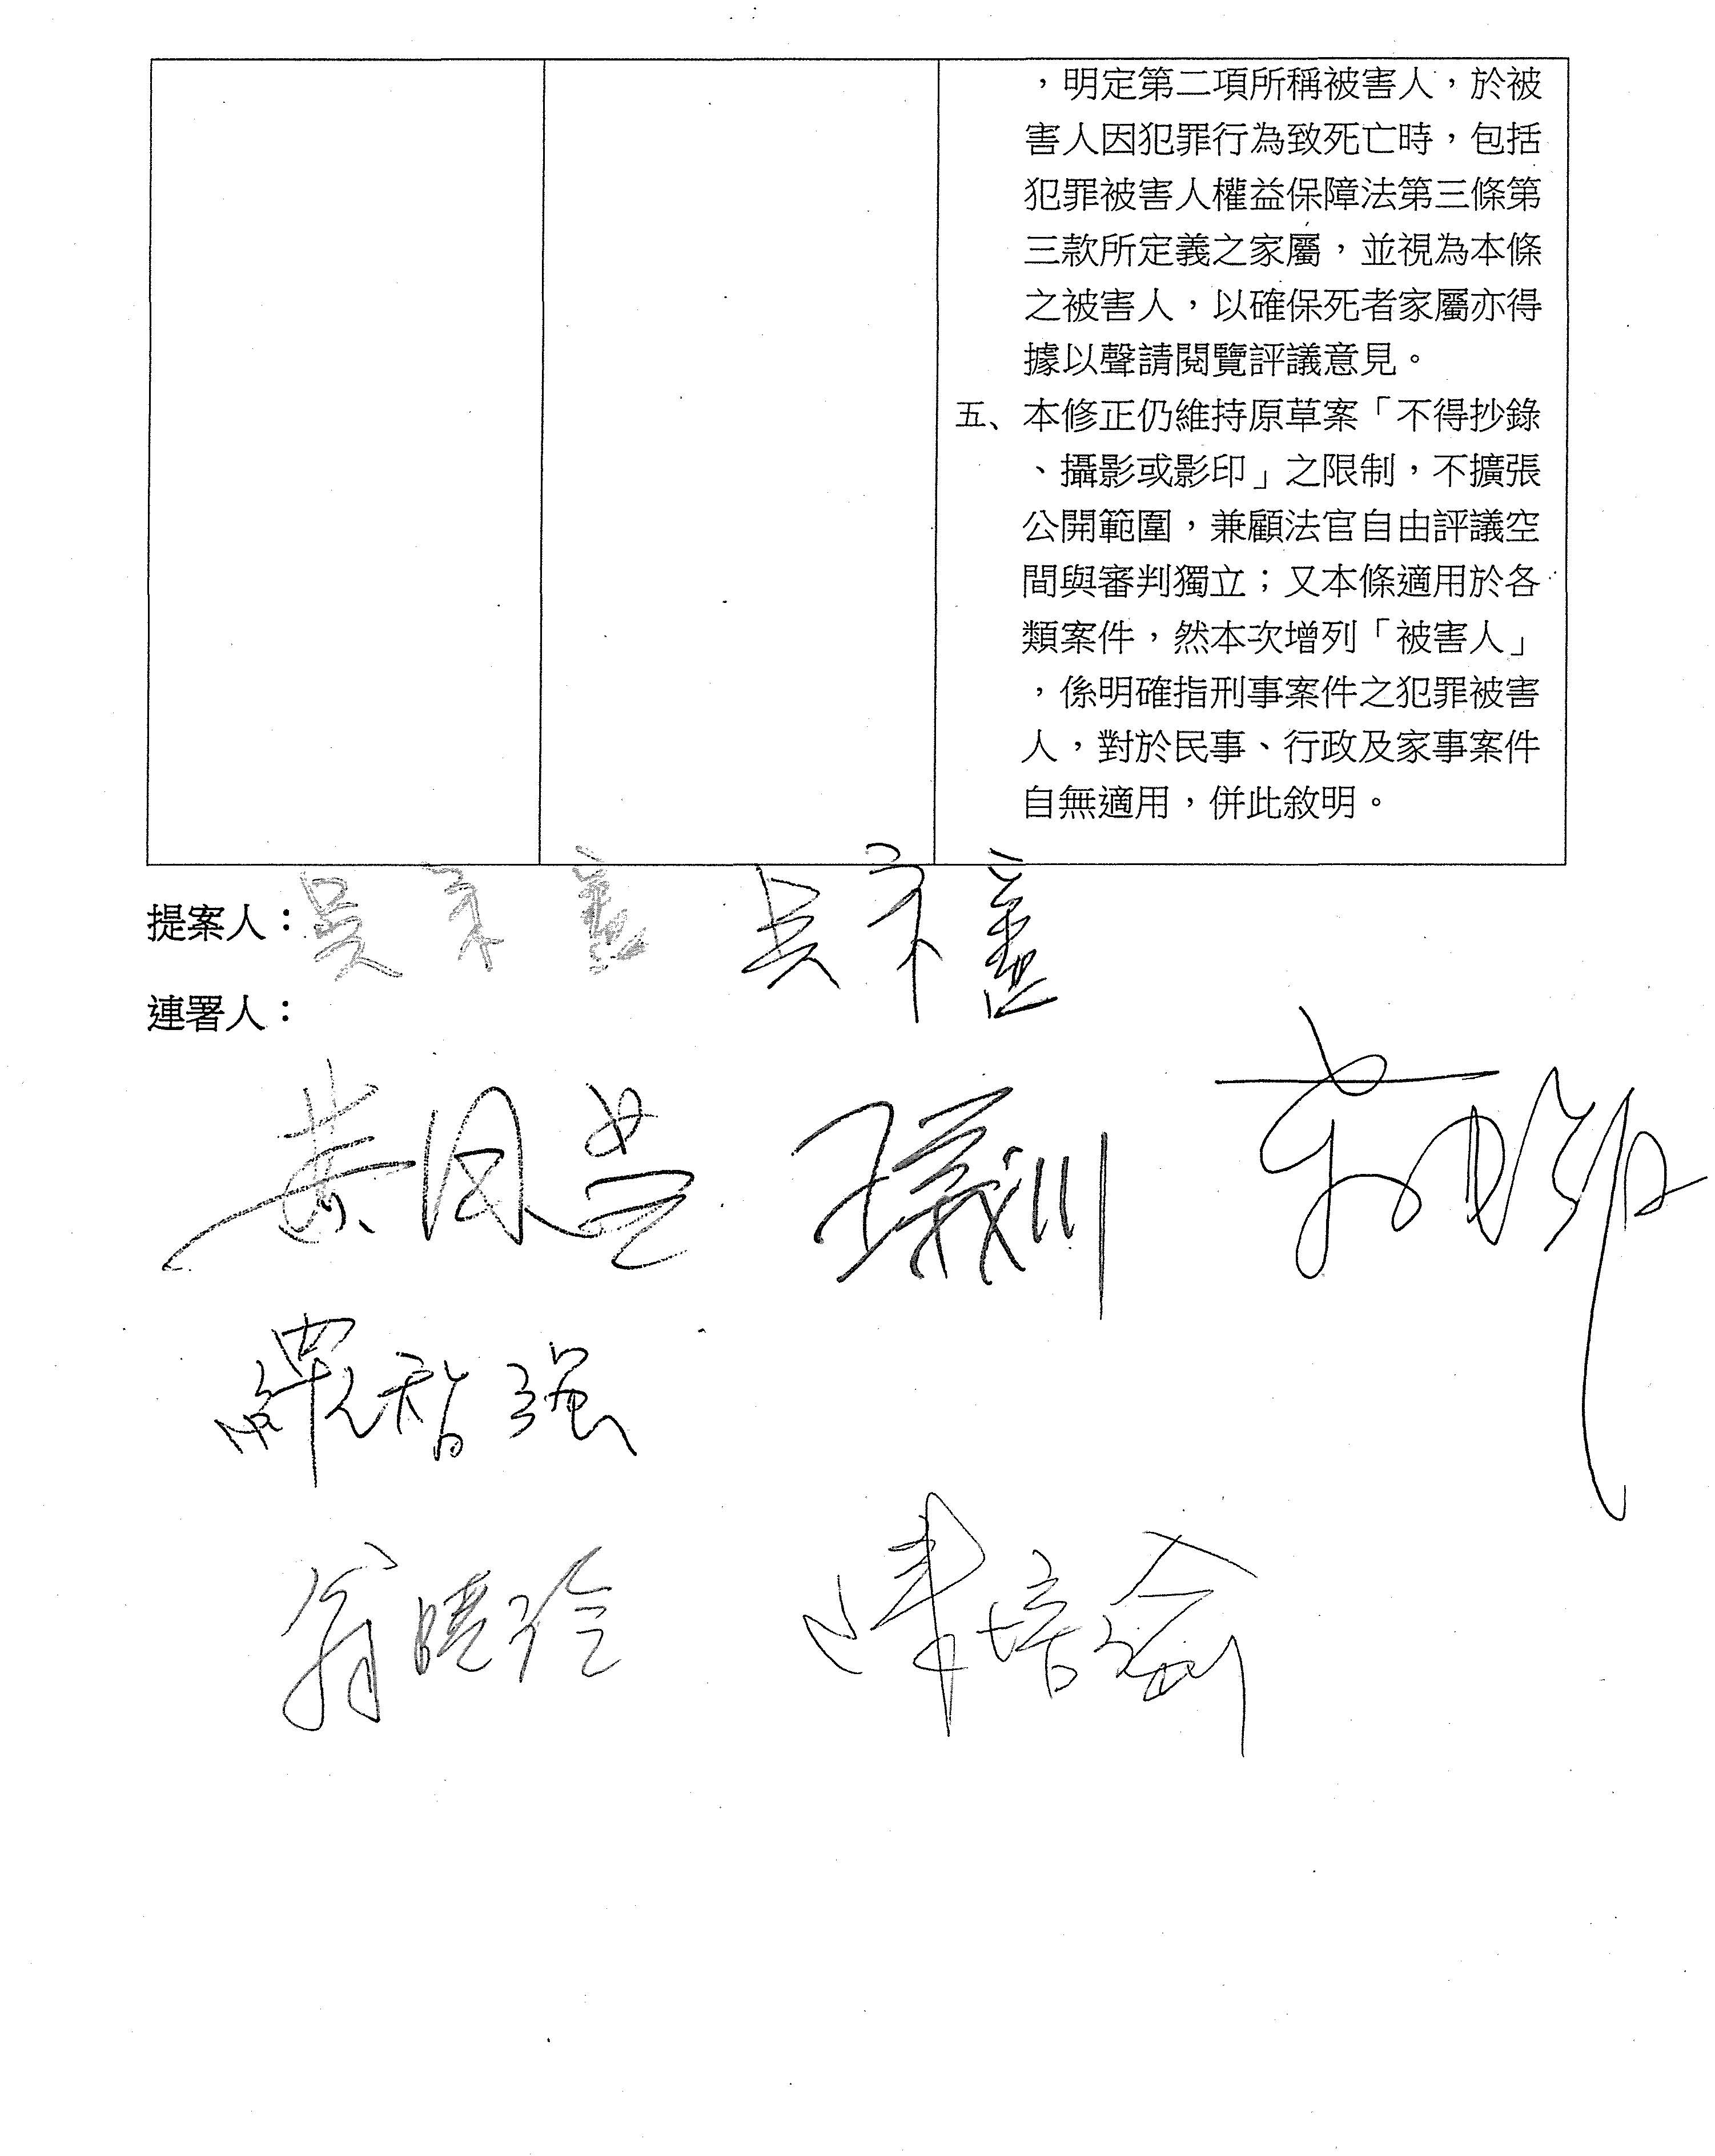 ，明定第二項所稱被害人，於被
害人因犯罪行為致死亡時，包括
犯罪被害人權益保障法第三條第
三款所定義之家屬，並視為本條
之被害人，以確保死者家屬亦得
據以聲請閱覽評議意見。
五、本修正仍維持原草案「不得抄錄
、攝影或影印」之限制，不擴張
公開範圍，兼顧法官自由評議空
間與審判獨立；又本條適用於各
類案件，然本次增列「被害人」
，係明確指刑事案件之犯罪被害
人，對於民事、行政及家事案件
自無適用，併此敘明。
提案人：吳宗憲 吳宗憲
連署人：
黃國昌 王義川
羅智強
翁曉玲 陳培瑜